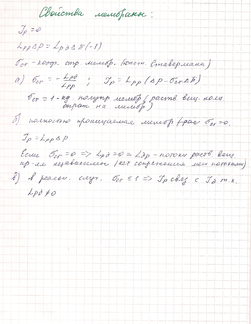 Свойства мембраны:
Jp = 0
LppΔP = LpдΔπ(-1)
σ - коэф. отр. мембр. (конст. Ставермана)
а) σ = - Lpд/Lpp ; Jp = Lpp (ΔP - σΔπ)
σ = 1 - полупр мембр (раств. вещ.
отраж на мембр)
б) полностью проницаемая мембр σ = 0.
Jp = LppΔP
Если σ = 0 => Lpд = 0 = Lдp - потоки раств. вещ.
и р-ля независимы (нет сопряжения между потоками)
в) в реальн. случ. σ ≤ 1 => Jp связ с Jд т.к.
Lpд ≠ 0